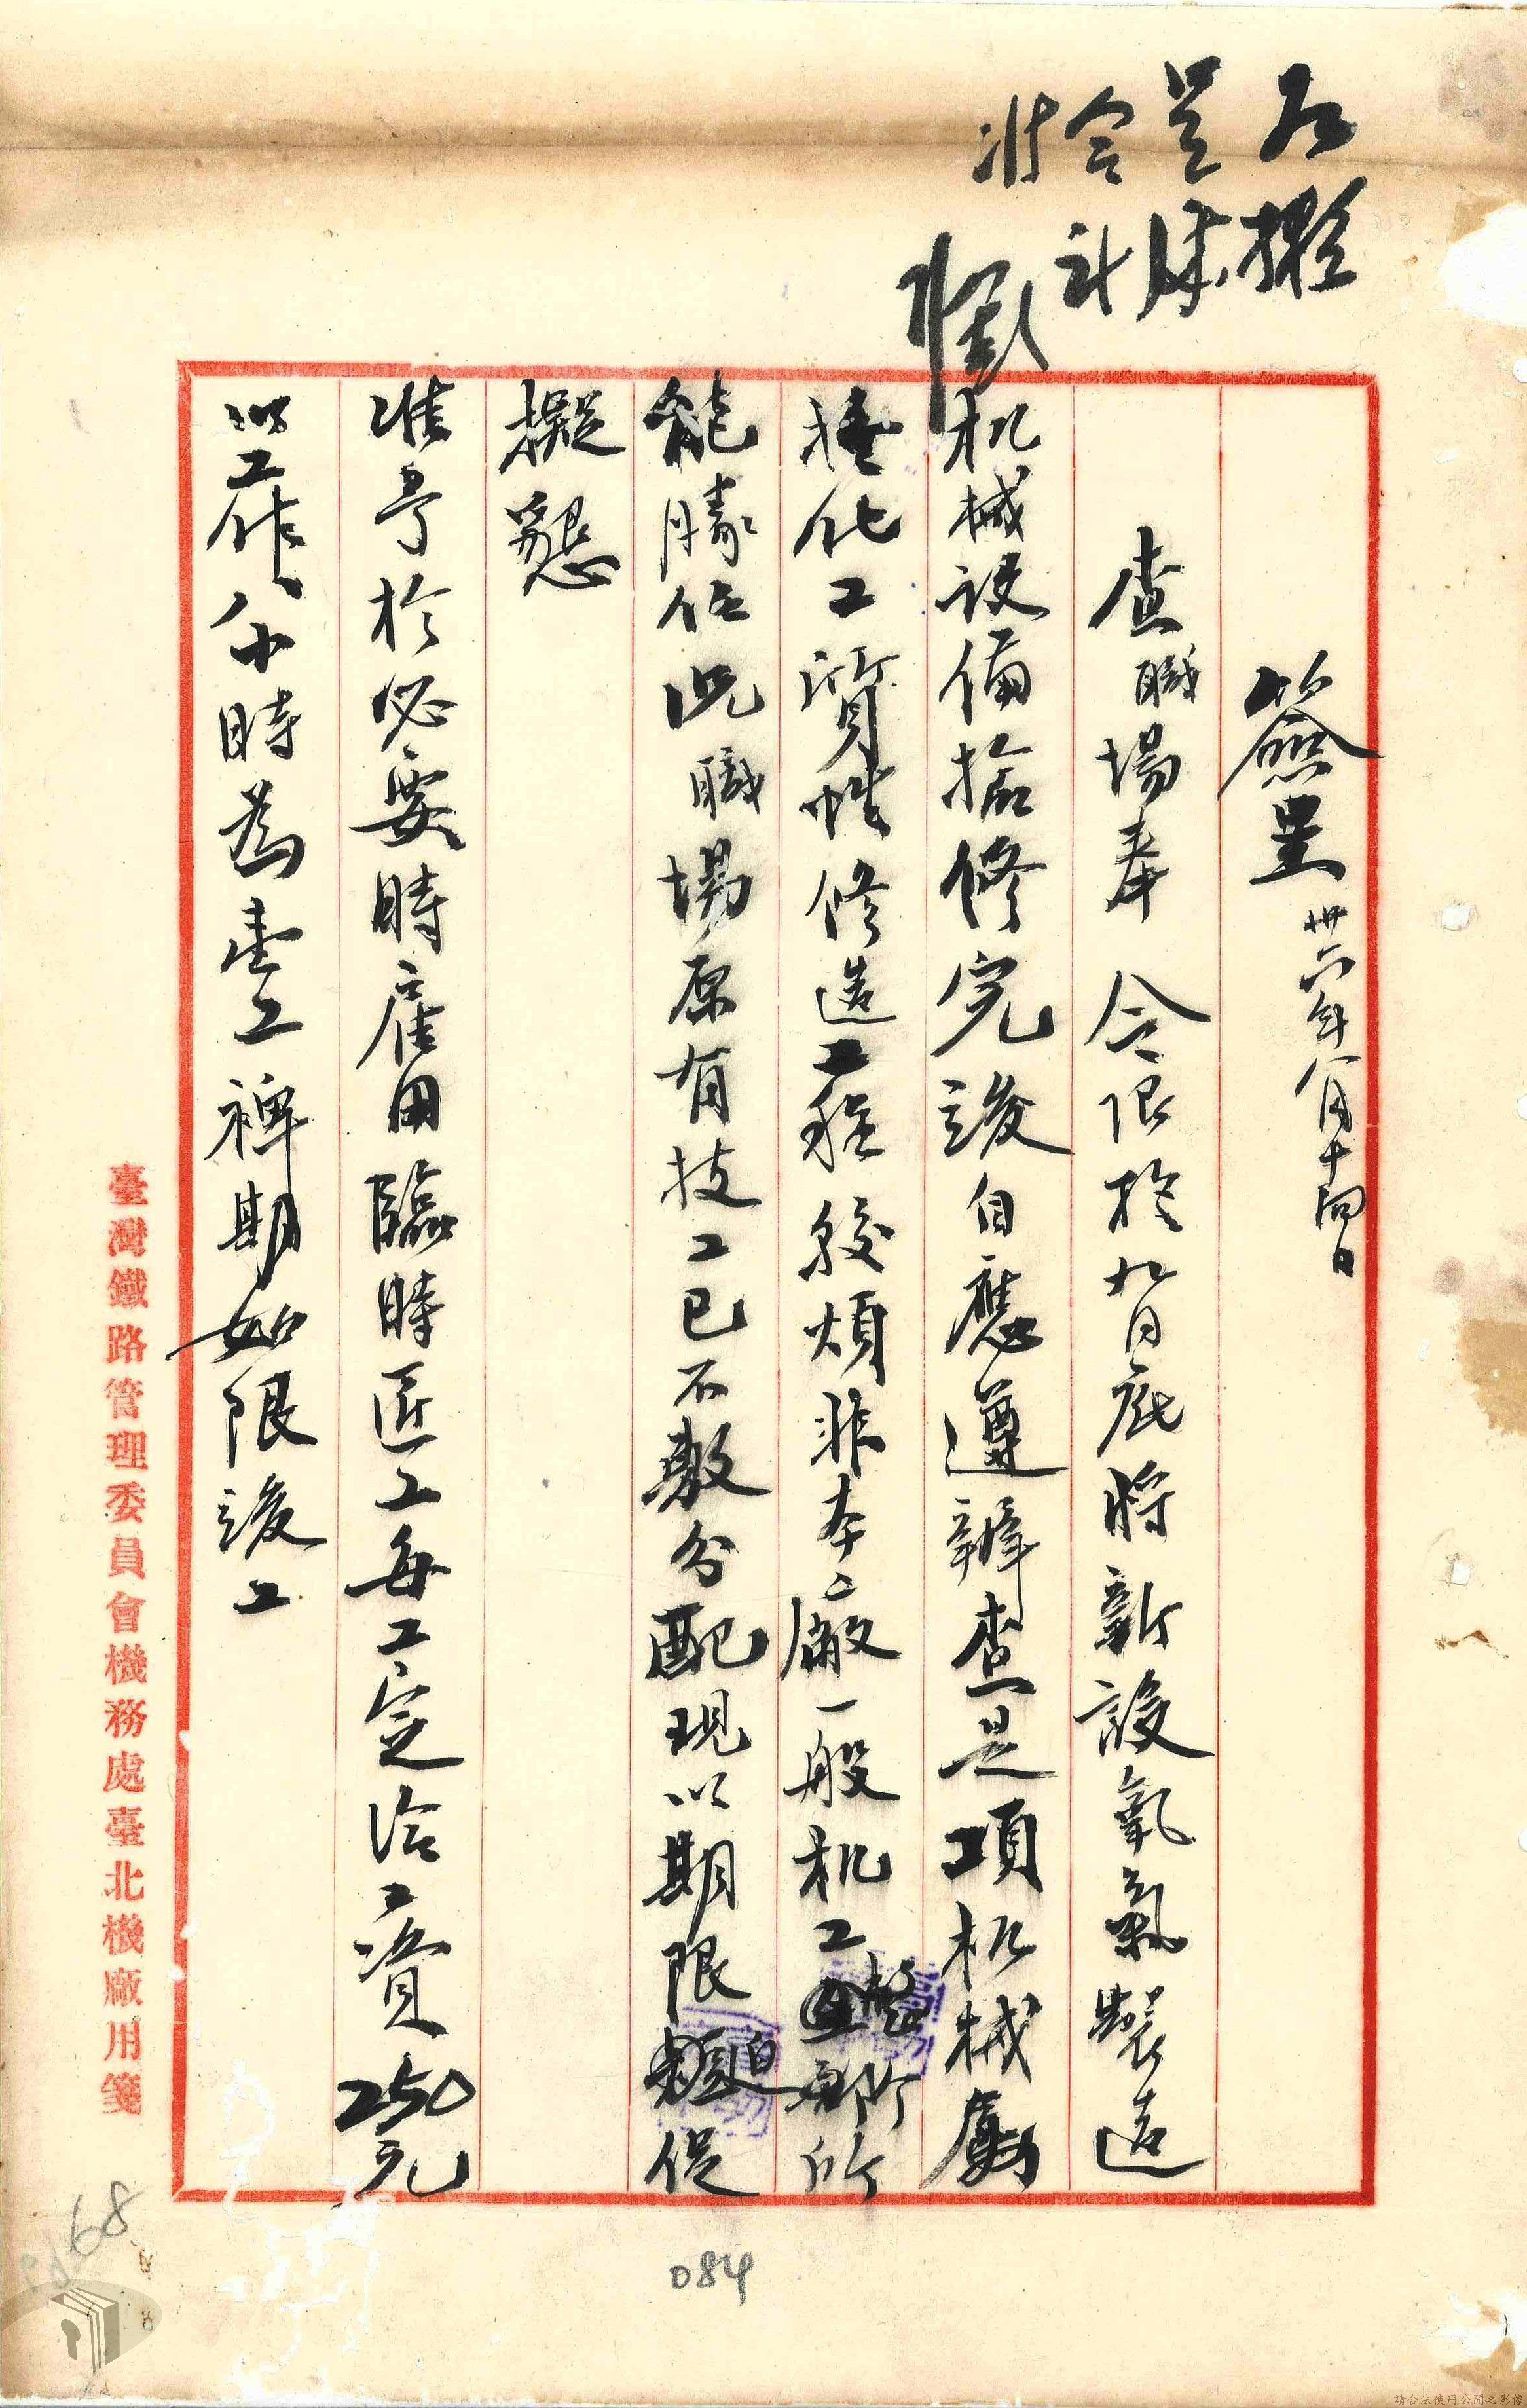 簽呈 卅六年八月十四日
查職場奉 令限於九月底將新設氧氣製造
机械設備揄修完竣自應遵辦查是項机械屬
種化工質性修造工程較煩非本廠一般机工
所
能勝任況職場原有技工已不敷分配現以期限迫促
擬懇
准予於必要時雇用臨時匠工每工定洽工資250元
以工作八小時為壹工裨期如限竣工
臺灣鐵路管理委員會機務處臺北機廠用箋
68
084
請合法使用公開之影像